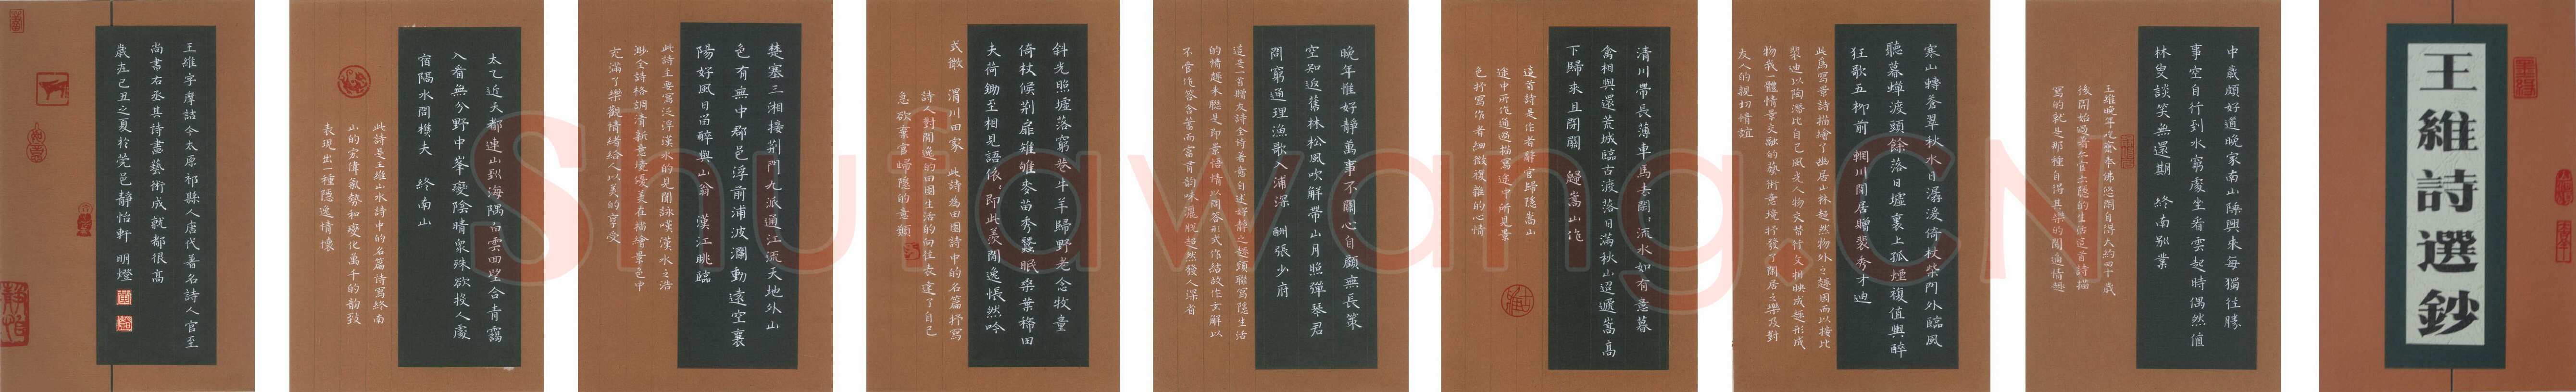 王維詩選鈔
中歲頗好道晚家南山陲興來每獨往勝
事空自行到水窮處坐看雲起時偶然値
林叟談笑無還期 終南別業
王維晚年吃齋奉佛悠閒自得大約四十歲
後開始過著亦官亦隱的生活這首詩描
寫的就是那種自得其樂的閒適情趣
寒山轉蒼翠秋水日潺湲倚杖柴門外臨風
聽暮蟬渡頭餘落日墟裏上孤煙複值輿醉
狂歌五柳前 輞川閒居贈裴秀才迪
此爲寫景詩描繪了幽居山林超然物外之趣因而以接比
裴迪以陶潛比自己風光人物交替行文相映成趣形成
物我一體情景交融的藝術意境抒發了閒居之樂及對
友人的親切情誼
清川帶長薄車馬去閒〻流水如有意暮
禽相與還荒城臨古渡落日滿秋山迢遞嵩高
下歸來且閉關 歸嵩山作
這首詩是作者辭官歸隱嵩山
途中所作通過描寫途中所見景
色抒寫作者細微複雜的心情
晚年惟好靜萬事不關心自顧無長策
空知返舊林松風吹解帶山月照彈琴君
問窮通理漁歌入浦深 酬張少府
這是一首贈友詩全詩着意自述好靜之趣頸聯寫隱生活
的情趣末聯是即景悟情以問答形式作結故作玄解以
不答作答含蓄而富有韵味灑脫超然發人深省
斜光照墟落窮巷牛羊歸野老念牧童
倚杖候荊扉雉雊麥苗秀蠶眠桑葉稀田
夫荷鋤至相見語依〻即此羨閒逸悵然吟
式微 渭川田家 此詩為田園詩中的名篇抒寫
詩人對閒逸的田園生活的向往表達了自己
急欲棄官歸隱的意願
楚塞三湘接荊門九派通江流天地外山
色有無中郡邑浮前浦波瀾動遠空襄
陽好風日留醉與山翁 漢江眺臨
此詩主要寫泛浮漢水的見聞詠嘆漢水之浩
渺全詩格調清新意境優美在描繪景色中
充滿了樂觀情緒給人以美的享受
太乙近天都連山到海隅白雲回望合青靄
入看無分野中峯變陰晴衆殊欲投人處
宿隔水問樵夫 終南山
此詩是王維山水詩中的名篇詩寫終南
山的宏偉氣勢和變化萬千的韻致
表現出一種隱逸情懷
王維字摩詰今太原祁縣人唐代著名詩人官至
尚書右丞其詩畫藝術成就都很高
歲在己丑之夏於莞邑靜怡軒 明燈
Shufawang.CN